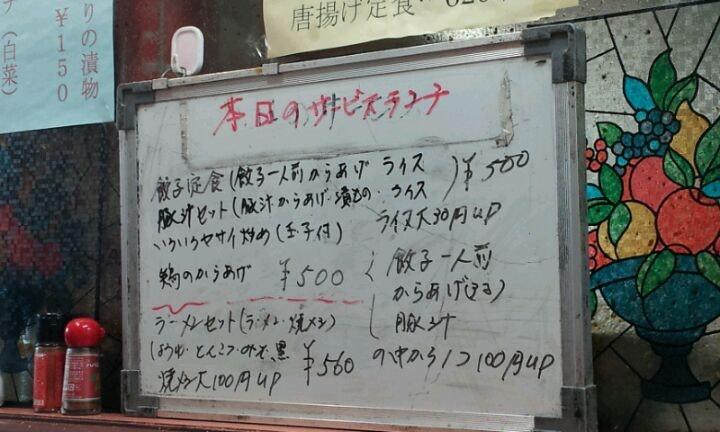 りの漬物
￥150
チ（白菜）
唐揚げ定食
本日のサービスランチ
餃子定食(餃子一人前 からあげ ライス)￥500
豚汁セット(豚汁 からあげ・漬もの・ライス
ライス大30円UP
いろいろヤサイ炒め(玉子付)
鶏のからあげ ￥500
餃子一人前
からあげ(2コ)
豚汁
の中から1つ100円UP
ラーメンセット(ラーメン・焼メシ)
しょうゆ・とんこつ・みそ・黒 ￥560
焼メシ大100円UP